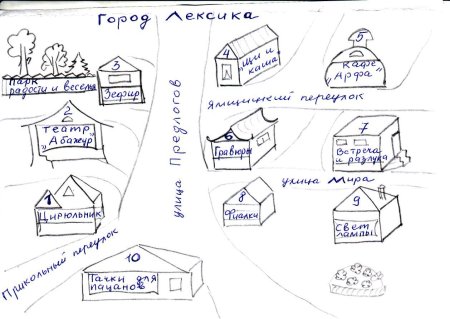 Город Лексика
Парк
радости и веселья
3
Зефир
4
"Щи и
каша"
5
Кафе
"Арфа"
Ямщицкий переулок
2
Театр
"Абажур"
улица Предлогов
6
Гравюры
7
Встреча
и разлука
улица Мира
1
Цирюльник
8
Фиалки
9
Свет
лампы
Прикольный переулок
10
Тачки для
пацанов